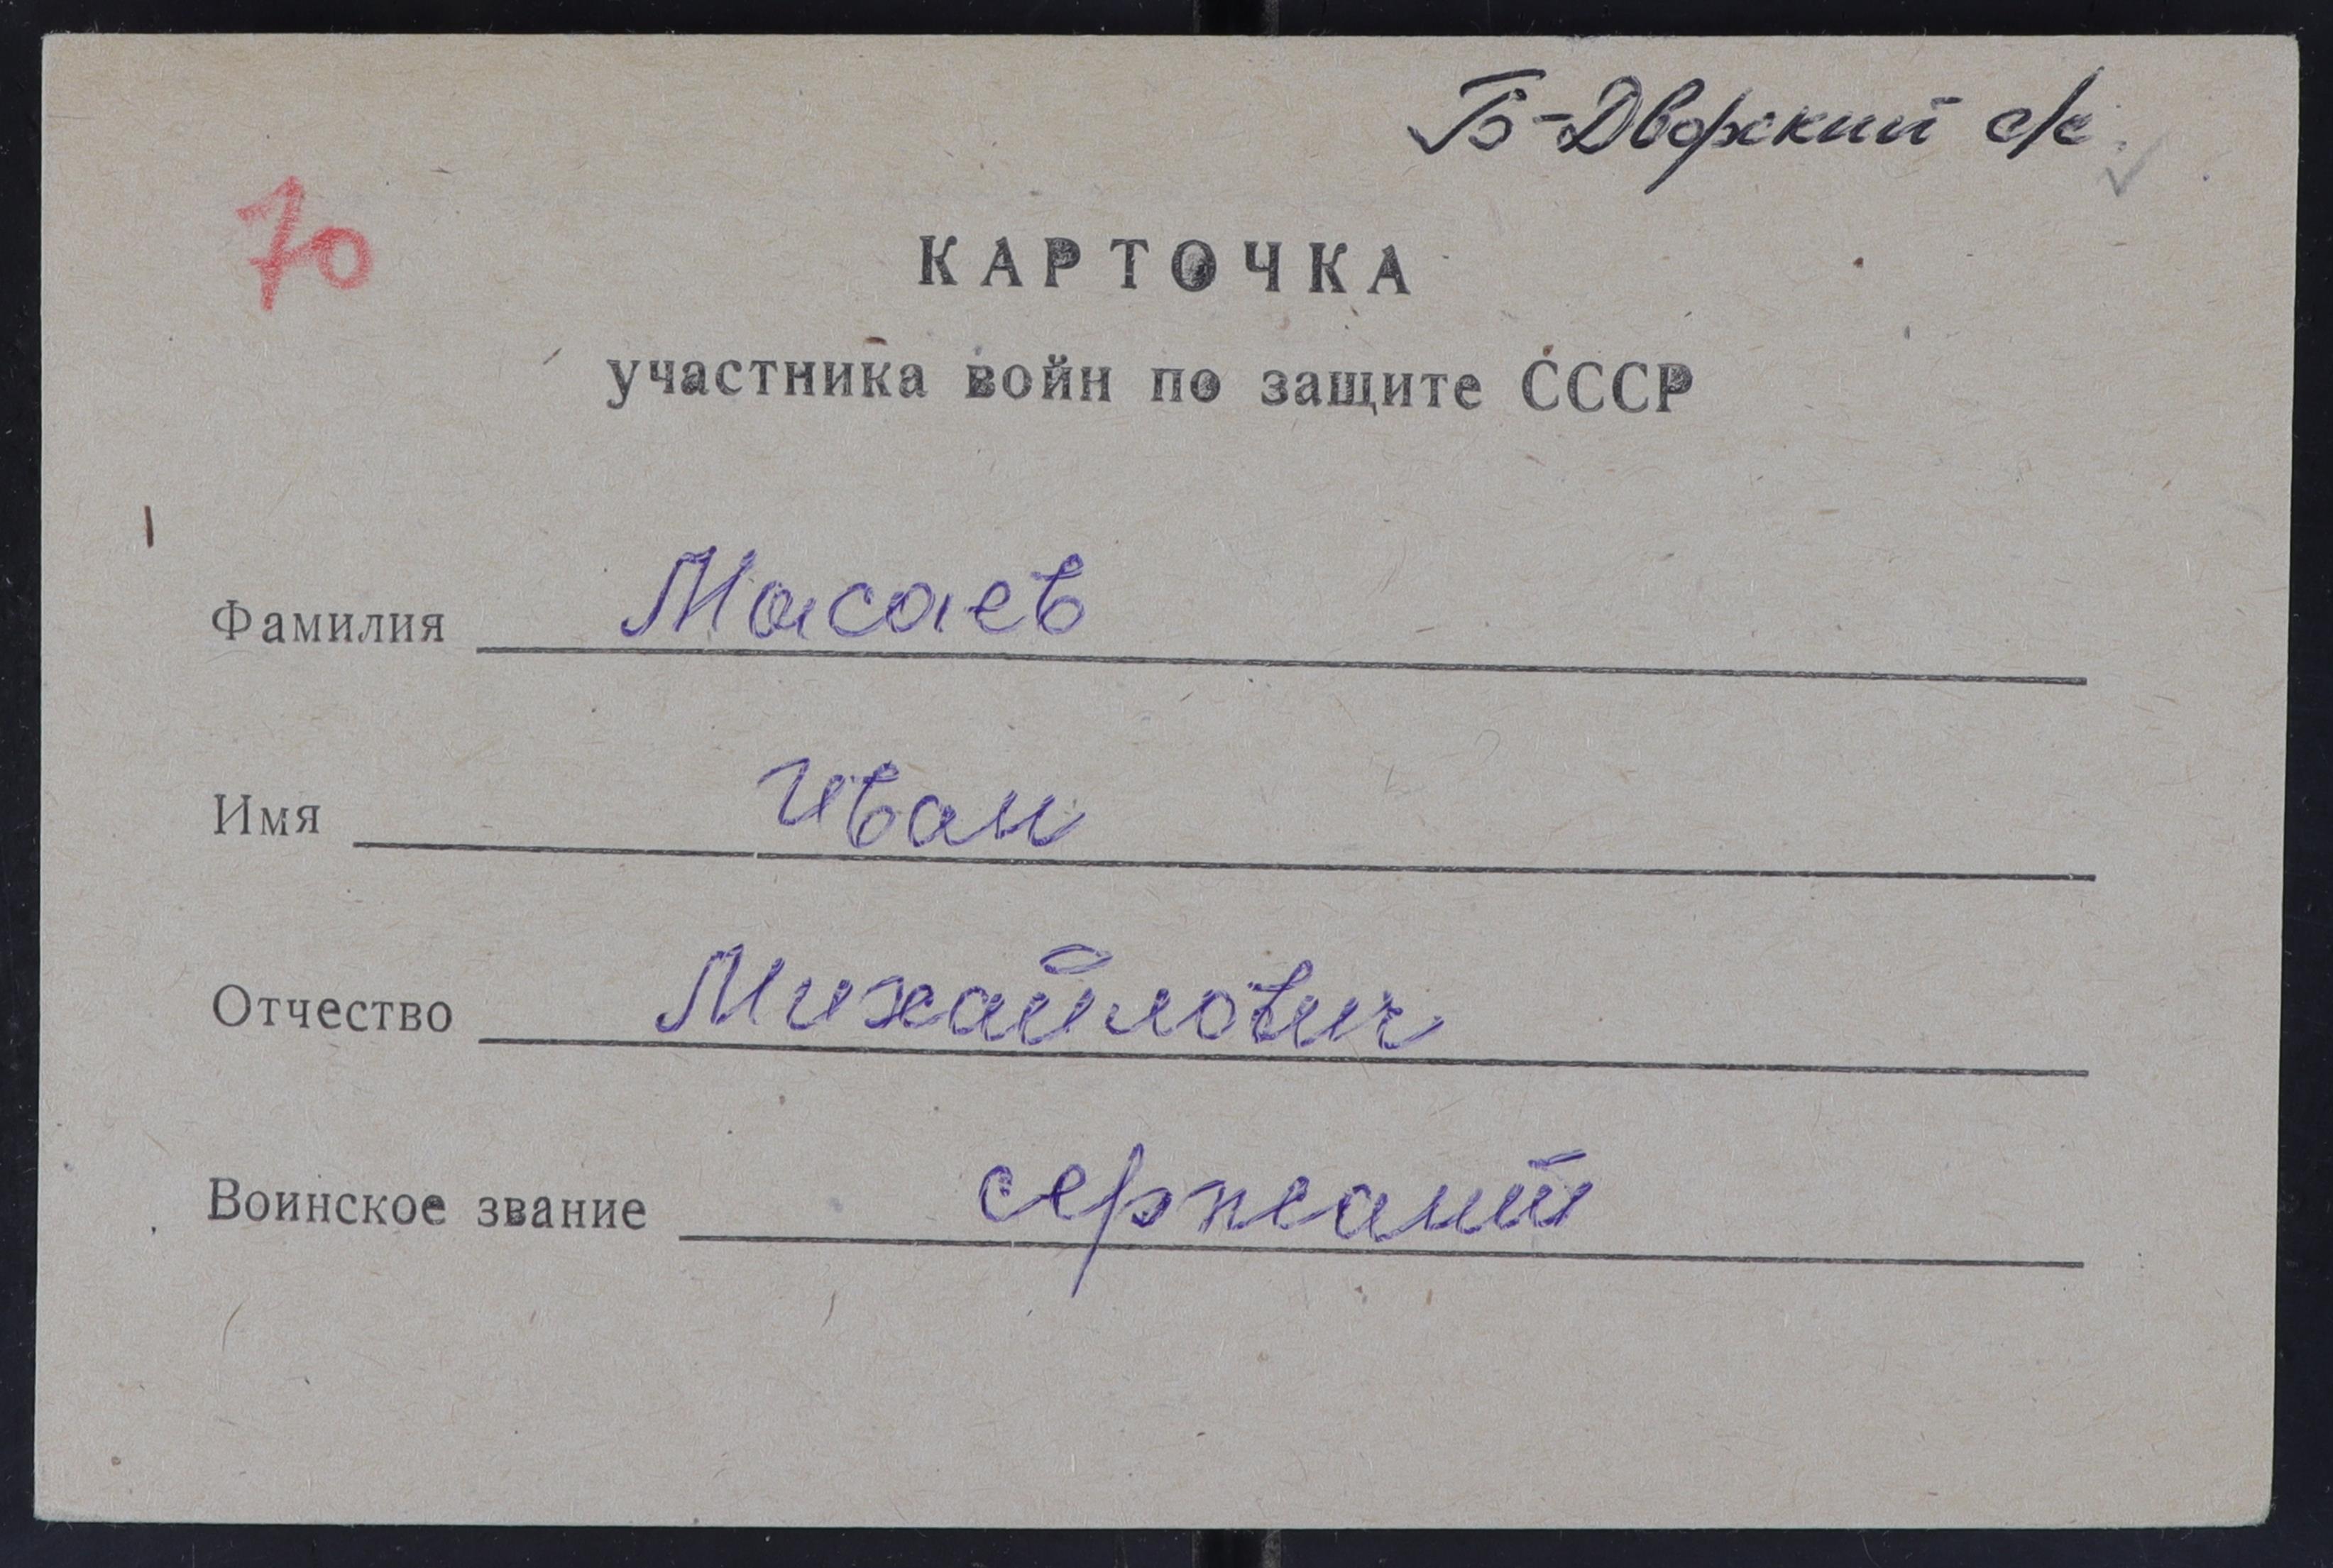 Б-Дворский с/с.
70
КАРТОЧКА
участника войн по защите СССР
Фамилия Масаев
Имя Иван
Отчество Михайлович
Воинское звание сержант